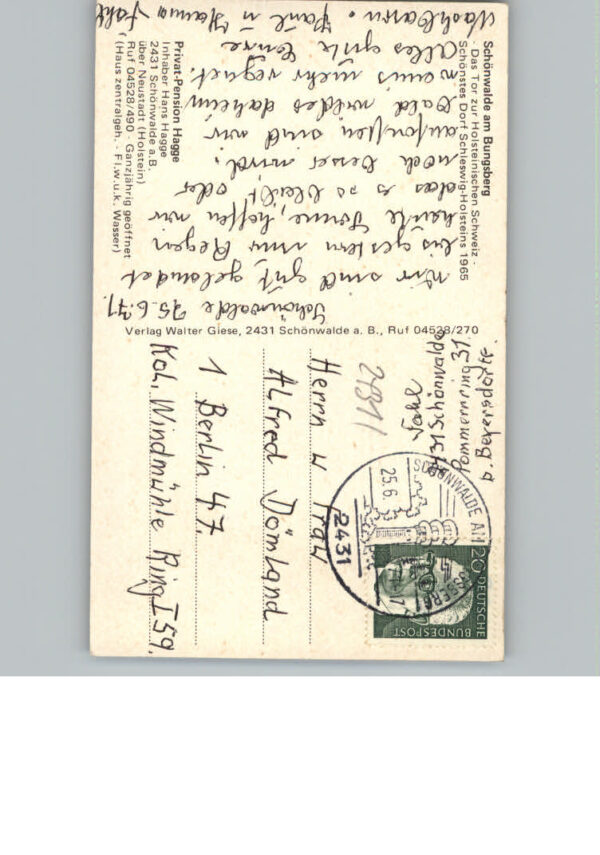 Schönwalde am Bungsberg
- Das Tor zur Holsteinischen Schweiz -
Schönstes Dorf Schleswig-Holsteins 1965
Schönwalde 25.6.71.
Wir sind gut gelandet
bis gestern nur Regen
heute Sonne, hoffen wir
das es so bleibt oder
noch besser wird.
ansonsten sind wir
bald wieder daheim
wenns mehr regnet.
Alles gute Eure
Paul u Hanna Fahl
Privat-Pension Hagge
Inhaber Hans Hagge
2431 Schönwalde a.B.
über Neustadt (Holstein)
Ruf 04528/490 · Ganzjährig geöffnet
(Haus zentralgeh. · Fl.w.u.k. Wasser)
Verlag Walter Giese, 2431 Schönwalde a. B., Ruf 04528/270
Fahl
2431 Schönwalde
Pommernring 31.
b. Beyersdorf.
2431
SCHÖNWALDE AM
25.6.
20
DEUTSCHE
BUNDESPOST
Herrn u Frau
Alfred Dömland
1 Berlin 47.
Kol. Windmühle Ring I 59.